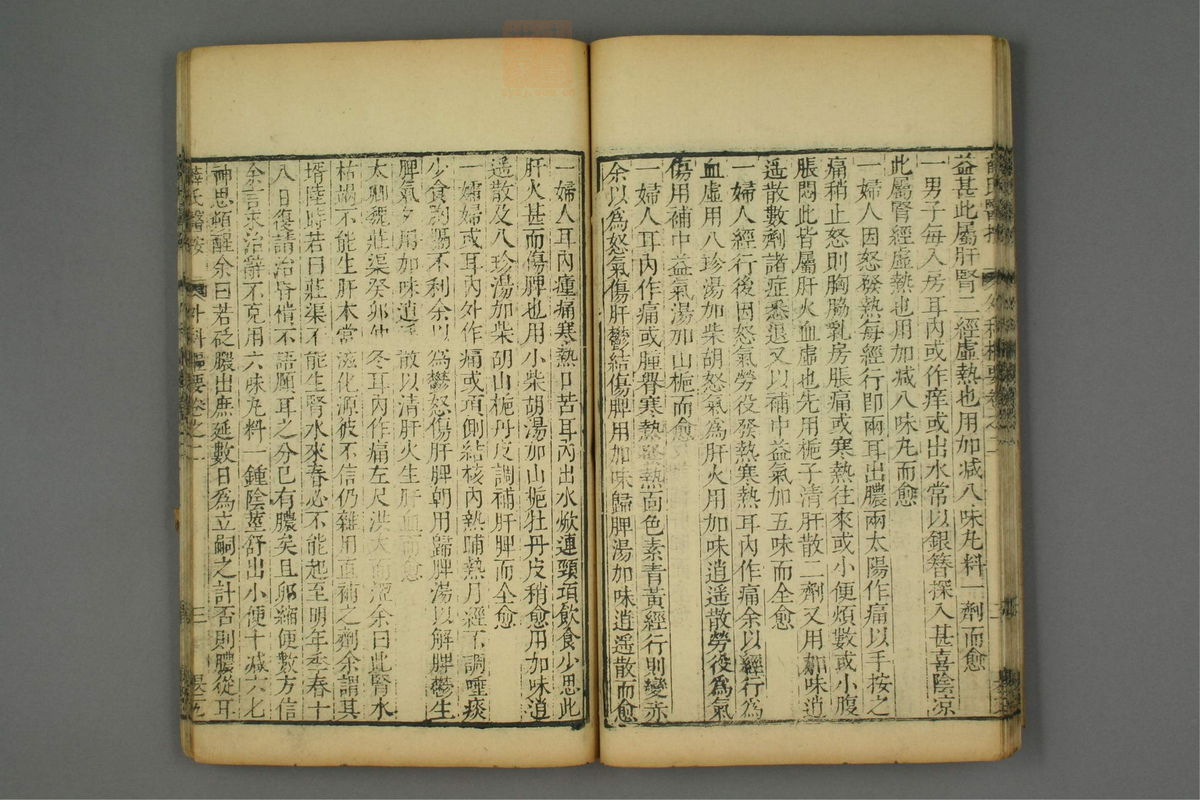 益甚此屬肝腎二經虛熱也用加减八味丸料一劑而愈
一男子每入房耳內或作痒或出水常以銀簪探入甚喜陰凉
此屬腎經虛熱也用加减八味丸而愈
一婦人因怒發熱每經行即兩耳出膿兩太陽作痛以手按之
痛稍止怒則胸脇乳房脹痛或寒熱往來或小便頻數或小腹
脹悶此皆屬肝火血虛也先用梔子清肝散二劑又用加味逍
遥散數劑諸症悉退又以補中益氣加五味而全愈
一婦人經行後因怒氣勞役發熱寒熱耳內作痛余以經行為
血虛用八珍湯加柴胡怒氣為肝火用加味逍遥散勞役為氣
傷用補中益氣湯加山梔而愈
一婦人耳內作痛或腫掀寒熱發熱面色素青黃經行則變赤
余以為怒氣傷肝鬱結傷脾用加味歸脾湯加味逍遥散而愈
一婦人耳內腫痛寒熱口苦耳內出水焮連頸項飲食少思此
肝火甚而傷脾也用小柴胡湯加山梔牡丹皮稍愈用加味逍
遥散及八珍湯加柴胡山梔丹皮調補肝脾而全愈
一孀婦或耳內外作痛或項側結核內熱晡熱月經不調唾痰
少食胸膈不利余以為鬱怒傷肝脾朝用歸脾湯以解脾鬱生
脾氣夕用加味逍遥散以清肝火生肝血而愈
太卿魏莊渠癸卯仲冬耳內作痛左尺洪大而澀余曰此腎水
枯竭不能生肝木當滋化源彼不信仍雜用直補之劑余謂其
壻陸時若曰莊渠不能生腎水來春必不能起至明年季春十
八日復請治昏憒不語顧耳之分已有膿矣且卵縮便數方信
余言求治辭不克用六味丸料一鍾陰莖舒出小便十减六七
神思頓醒余曰若砭膿出庶延數日為立嗣之計否則膿從耳
薛氏醫按 外科樞要卷之二 三